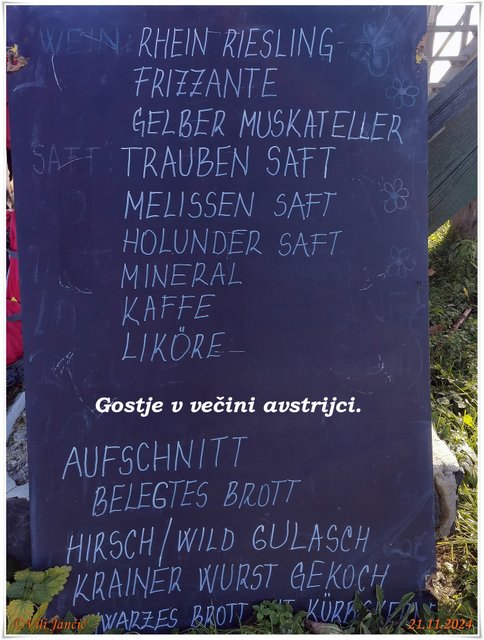 WEIN RHEIN RIESLING
FRIZZANTE
GELBER MUSKATELLER
SAFT TRAUBEN SAFT
MELISSEN SAFT
HOLUNDER SAFT
MINERAL
KAFFE
LIKÖRE
Gostje v večini avstrijci.
AUFSCHNITT
BELEGTES BROTT
HIRSCH/WILD GULASCH
KRAINER WURST GEKOCH
BROTT
©Vili Jančič
21.11.2024